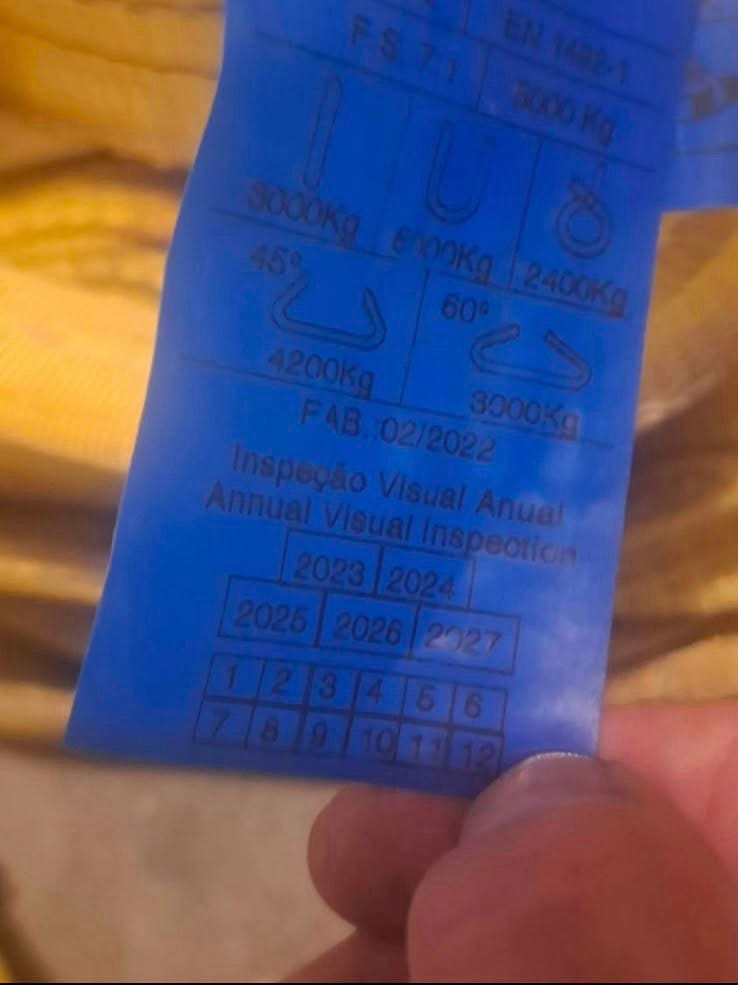 F S 7:1 EN 1492-1
3000 Kg
3000Kg 6000Kg 2400Kg
45° 60°
4200Kg 3000Kg
FAB.:02/2022
Inspeção Visual Anual
Annual Visual Inspection
2023 2024
2025 2026 2027
1 2 3 4 5 6
7 8 9 10 11 12